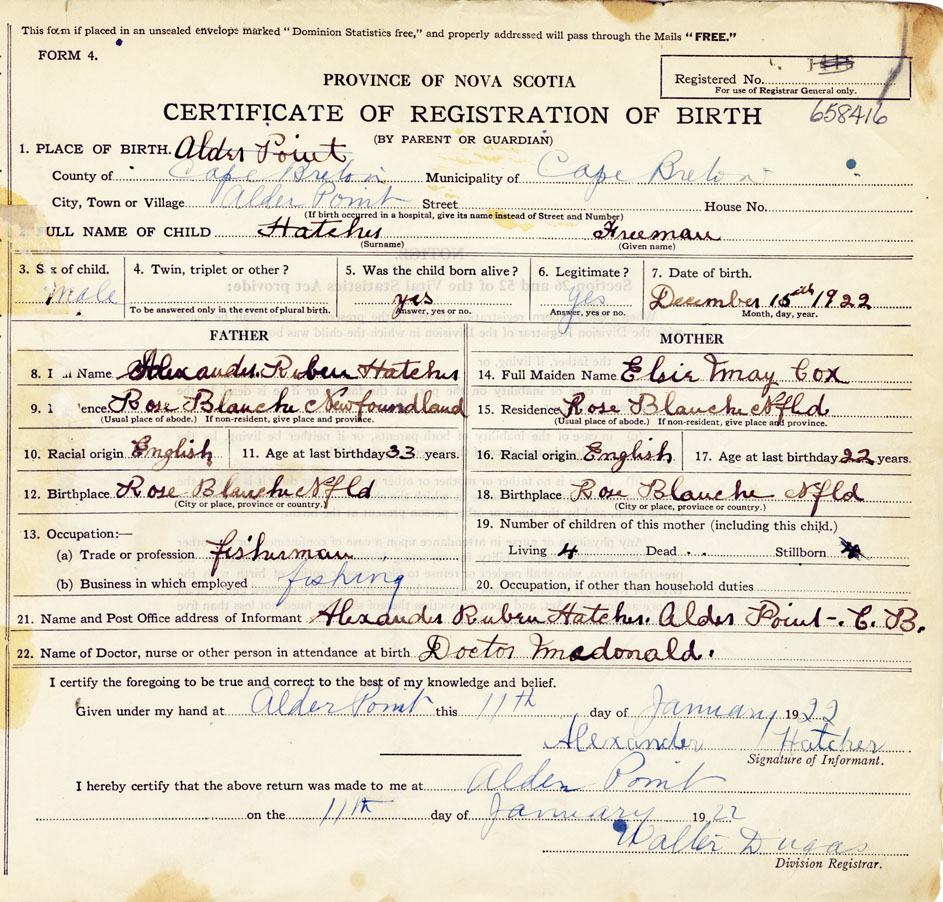 This form if placed in an unsealed envelope marked "Dominion Statistics free," and properly addressed will pass through the Mails "FREE."
FORM 4.
PROVINCE OF NOVA SCOTIA
Registered No.
For use of Registrar General only.
CERTIFICATE OF REGISTRATION OF BIRTH
658416
(BY PARENT OR GUARDIAN)
1. PLACE OF BIRTH. Alder Point
County of Cape Breton Municipality of Cape Breton
City, Town or Village Alder Point Street House No.
(If birth occurred in a hospital, give its name instead of Street and Number)
ULL NAME OF CHILD Hatcher Freeman
(Surname) (Given name)
3. S x of child. 4. Twin, triplet or other? 5. Was the child born alive? 6. Legitimate? 7. Date of birth.
male yes yes December 15th 1922
To be answered only in the event of plural birth. Answer, yes or no. Answer, yes or no. Month, day, year.
FATHER MOTHER
8. Name Alexander. Ruben Hatcher 14. Full Maiden Name Elsie May Cox
9. dence. Rose Blanche Newfoundland 15. Residence Rose Blanche Nfld
(Usual place of abode.) If non-resident, give place and province. (Usual place of abode.) If non-resident, give place and province.
10. Racial origin English 11. Age at last birthday 33 years. 16. Racial origin English 17. Age at last birthday 22 years.
12. Birthplace Rose Blanche Nfld 18. Birthplace Rose Blanche Nfld
(City or place, province or country.) (City or place, province or country.)
13. Occupation:— 19. Number of children of this mother (including this child.)
(a) Trade or profession fisherman Living 4 Dead Stillborn
(b) Business in which employed fishing 20. Occupation, if other than household duties
21. Name and Post Office address of Informant Alexander Ruben Hatcher. Alder Point-. C. B.
22. Name of Doctor, nurse or other person in attendance at birth Doctor Mcdonald.
I certify the foregoing to be true and correct to the best of my knowledge and belief.
Given under my hand at Alder Point this 11th day of January 1922
Alexander Hatcher
Signature of Informant.
I hereby certify that the above return was made to me at Alder Point
on the 11th day of January 1922
Walter Dugas
Division Registrar.